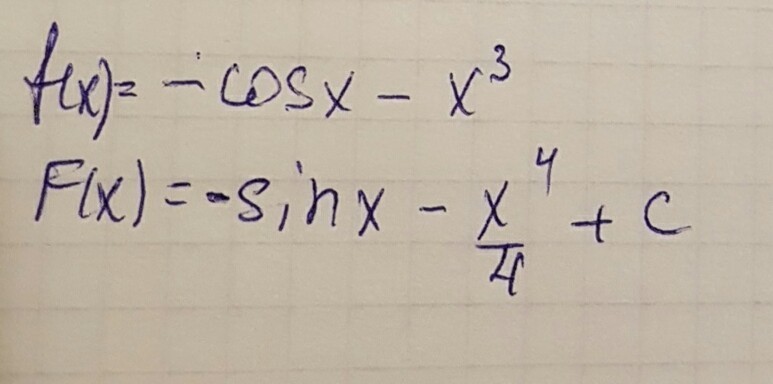 f(x)= -cosx - x³
F(x)=-sinx - x⁴/4 + C